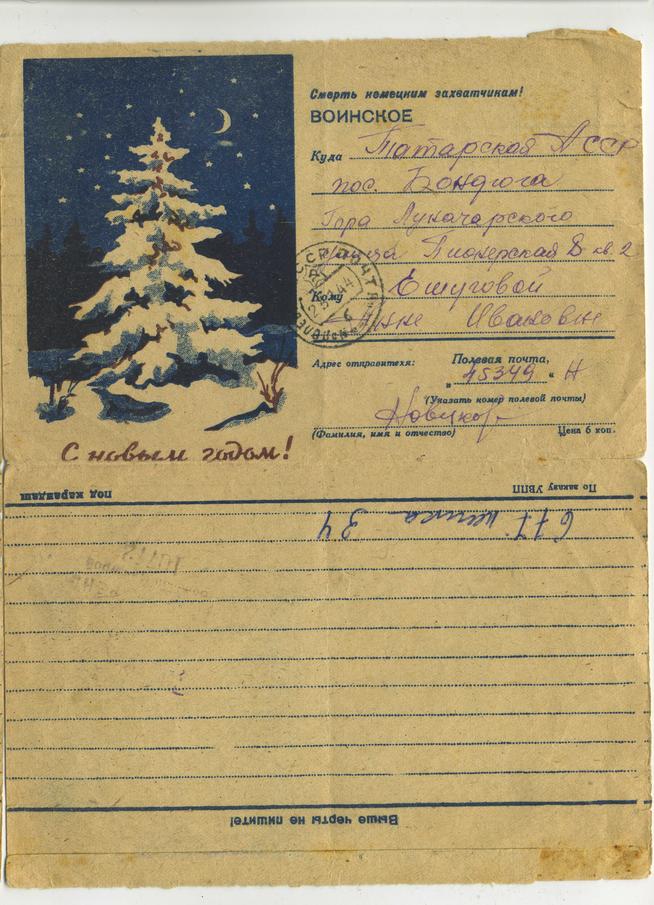 Смерть немецким захватчикам!
ВОИНСКОЕ
Куда Татарская АССР
пос. Бондюга
Луначарского
улица Пионерская 8 кв. 2
Кому Ешуговой
Анне Ивановне
Адрес отправителя: Полевая почта,
„ 45349 “ Н
(Указать номер полевой почты)
(Фамилия, имя и отчество) Цена 6 коп.
С новым годом!
По заказу УВПП
под карандаш
671 34
Выше черты не пишите!